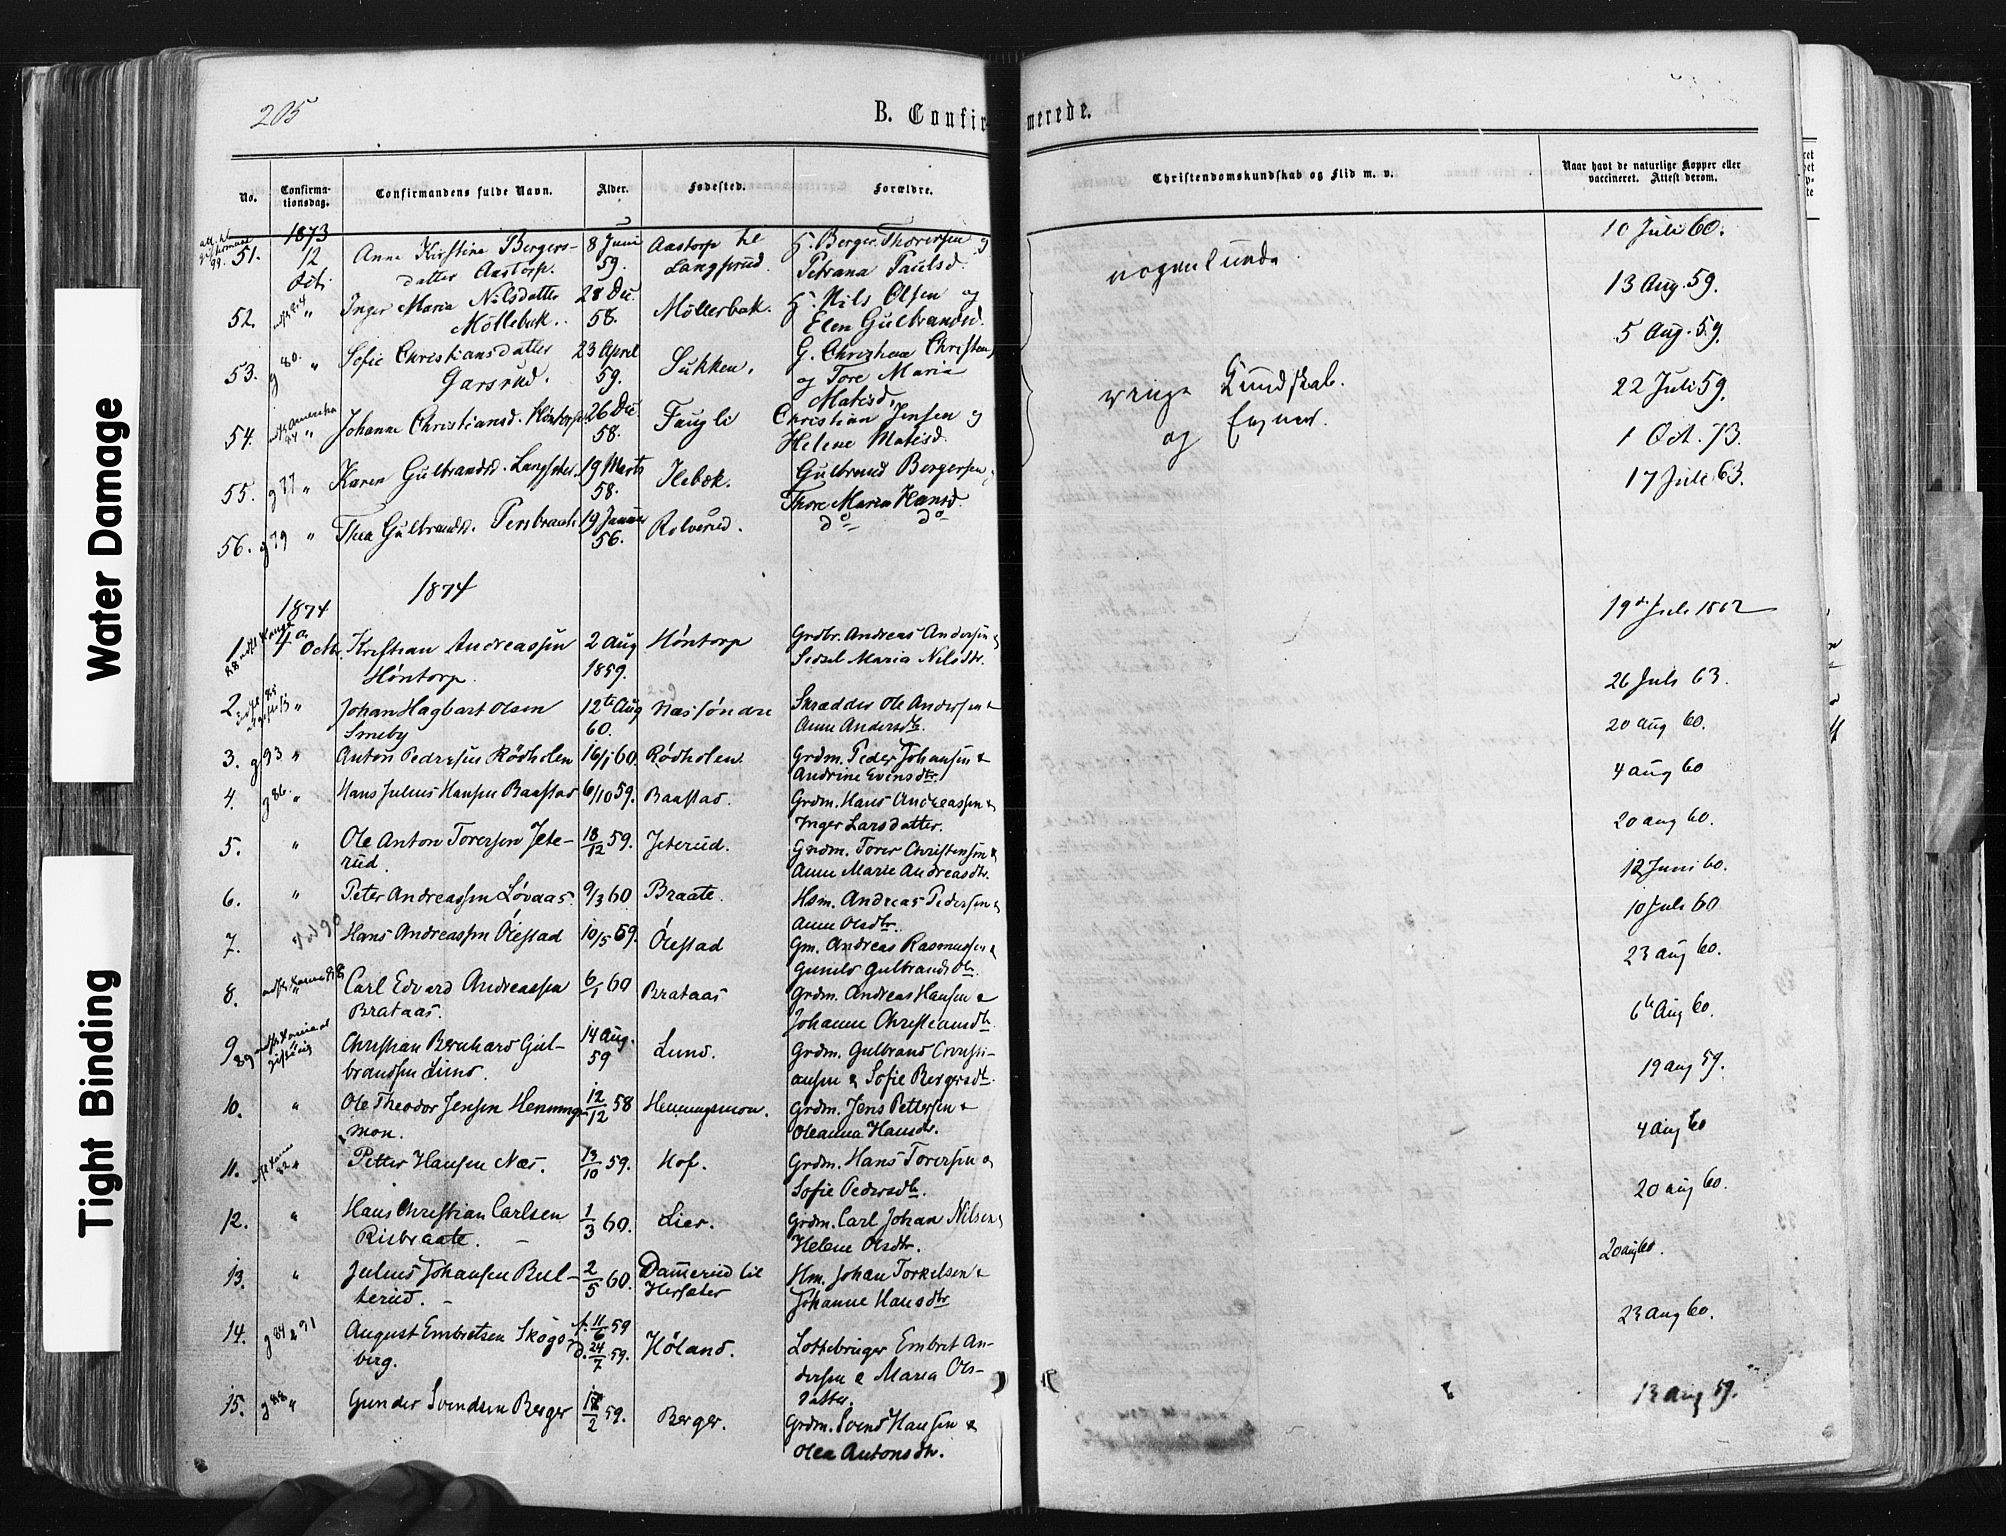 205
B. Confirmerede.
No.
Confirmationsdag.
Confirmandens fulde Navn.
Alder.
Fødested.
Forældre.
Christendomskundskab og Flid m. v.
Naar havt de naturlige Kopper eller vaccineret. Attest derom.
1873
51. 12 Oct. Anne Kirstine Bergers- 8 Juni Aastorp G. Berger Thorersen og 10 Juli 60.
datter Aastorp. 59. Petrana Paulsd.
nogenlunde
52. " Inger Maria Nilsdatter 28 Dec Møllerbæk. G. Nils Olsen og 13 Aug. 59.
58. Elen Gulbrandsd.
53. g 80. " Sofie Christiansdatter 23 April Sukken. G. 5 Aug. 59.
Garsrud. 59. og Tore Maria
Matisd.
54. " Johanne Christiansd. 26 Dec Faugli Christian Jensen og 22 Juli 59.
58. Helene Matisd.
Kundskab.
og
55. g 77 " Karen Gulbrandsd. 19 Marts Ilebæk. Gulbrand Bergersen 1 Oct. 73.
58. Thore Maria Hansd.
56. g 79 " Thea Gulbrandsd. 19 Januar Rolverud. do do 17 Juli 63.
56.
1874
1874
1. 4 Octbr. Kristian Andreassen 2 Aug Høntorp Grdbr. Andreas Andersen & 19de Juli 1862
Høntorp. 1859. Sidsel Maria Nilsdtr.
2. " Johan Hagbart Olsen 12te Aug Næs søndre Skrædder Ole Andersen & 26 Juli 63.
Smeby 60. Anne Andersdtr.
3. g 93 " Anton Pedersen Rødholen 16/1 60. Rødholen. Grdm. Peder Johansen & 20 aug 60.
Andrine Evensdtr.
4. g 86. " Hans Julius Hansen Baastad 6/10 59. Baastad. Grdm. Hans Andreassen & 4 aug 60
Inger Larsdatter.
5. " Ole Anton Torersen Jete- 18/12 59. Jeterud. Grdm. Torer Christensen & 20 aug 60.
rud. Anne Marie Andreasdtr.
6. " Peter Andreassen Løvaas. 9/3 60 Braate. Hsm. Andreas Pedersen & 12 Juni 60.
Anne Olsdtr.
7. " Hans Andreassen Ølestad 10/5 59. Ølestad Gm. Andreas Rasmussen & 10 Juli 60
Gunild Gulbrandsdtr.
8. " Carl Edvard Andreassen 6/1 60 Brataas Grdm. Andreas Hansen & 23 aug 60.
Brataas. Johanne Christiansdtr.
9. Christian Bernhard Gul- 14 Aug. Lund. Grdm. Gulbrand Christi- 6te Aug 60.
brandsen Lund. 59 ansen & Sofie Bergersdtr.
10. " Ole Theodor Jensen Hennings- 12/12 58 Henningsmon. Grdm. Jens Pettersen & 19 aug 59.
mon. Oleanna Hansdtr.
11. " Petter Hansen Næs. 13/10 59. Hof. Grdm. Hans Torersen & 4 aug 60
Sofie Pedersdtr.
12. " Hans Christian Carlsen 1/3 60. Lier. Grdm. Carl Johan Nilsen & 20 aug 60.
Risbraate. Helene Olsdtr.
13. " Julius Johansen Bul- 2/5 60. Damerud til Hm. Johan Torkelsen & 20 aug 60.
terud. Hersæter Johanne Hansdtr
14. g 84 & 91 August Embretsen Skogs- f. 11/6 59 Høland. Lottebruger Embret An- 23 aug 60.
berg. d. 24/7 59. dersen & Maria Ols-
datter.
15. g 88 " Gunder Svendsen Berger 2 59. Berger. Grdm. Svend Hansen & 13 aug 59.
Olea Antonsdtr.
Water Damage
Tight Binding